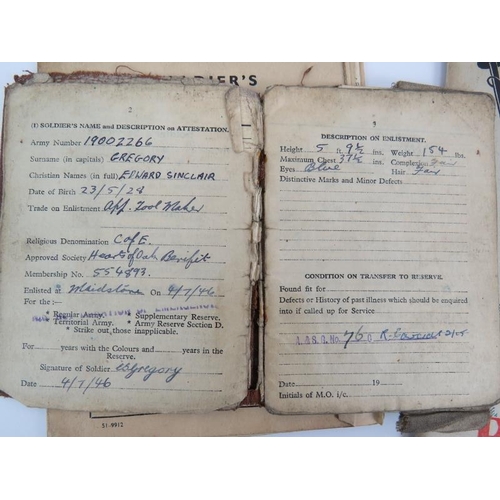 SOLDIER'S
2
(I) SOLDIER'S NAME and DESCRIPTION on ATTESTATION.
Army Number 19002266
Surname (in capitals) GREGORY
Christian Names (in full) EDWARD SINCLAIR
Date of Birth 23/5/28
Trade on Enlistment App. Tool Maker
Religious Denomination C of E.
Approved Society Hearts of Oak Benifit
Membership No. 554893.
Enlisted at Maidstone On 4/7/46
For the :—
* Regular Army. * Supplementary Reserve.
* Territorial Army. * Army Reserve Section D.
* Strike out those inapplicable.
For years with the Colours and years in the
Reserve.
Signature of Soldier Gregory
Date 4/7/46
51-9912
3
DESCRIPTION ON ENLISTMENT.
Height 5 ft. 9½ ins. Weight 154 lbs.
Maximum Chest 37½ ins. Complexion Fair
Eyes Blue Hair Fair
Distinctive Marks and Minor Defects
CONDITION ON TRANSFER TO RESERVE.
Found fit for
Defects or History of past illness which should be enquired
into if called up for Service
76
Date 19
Initials of M.O. i/c.